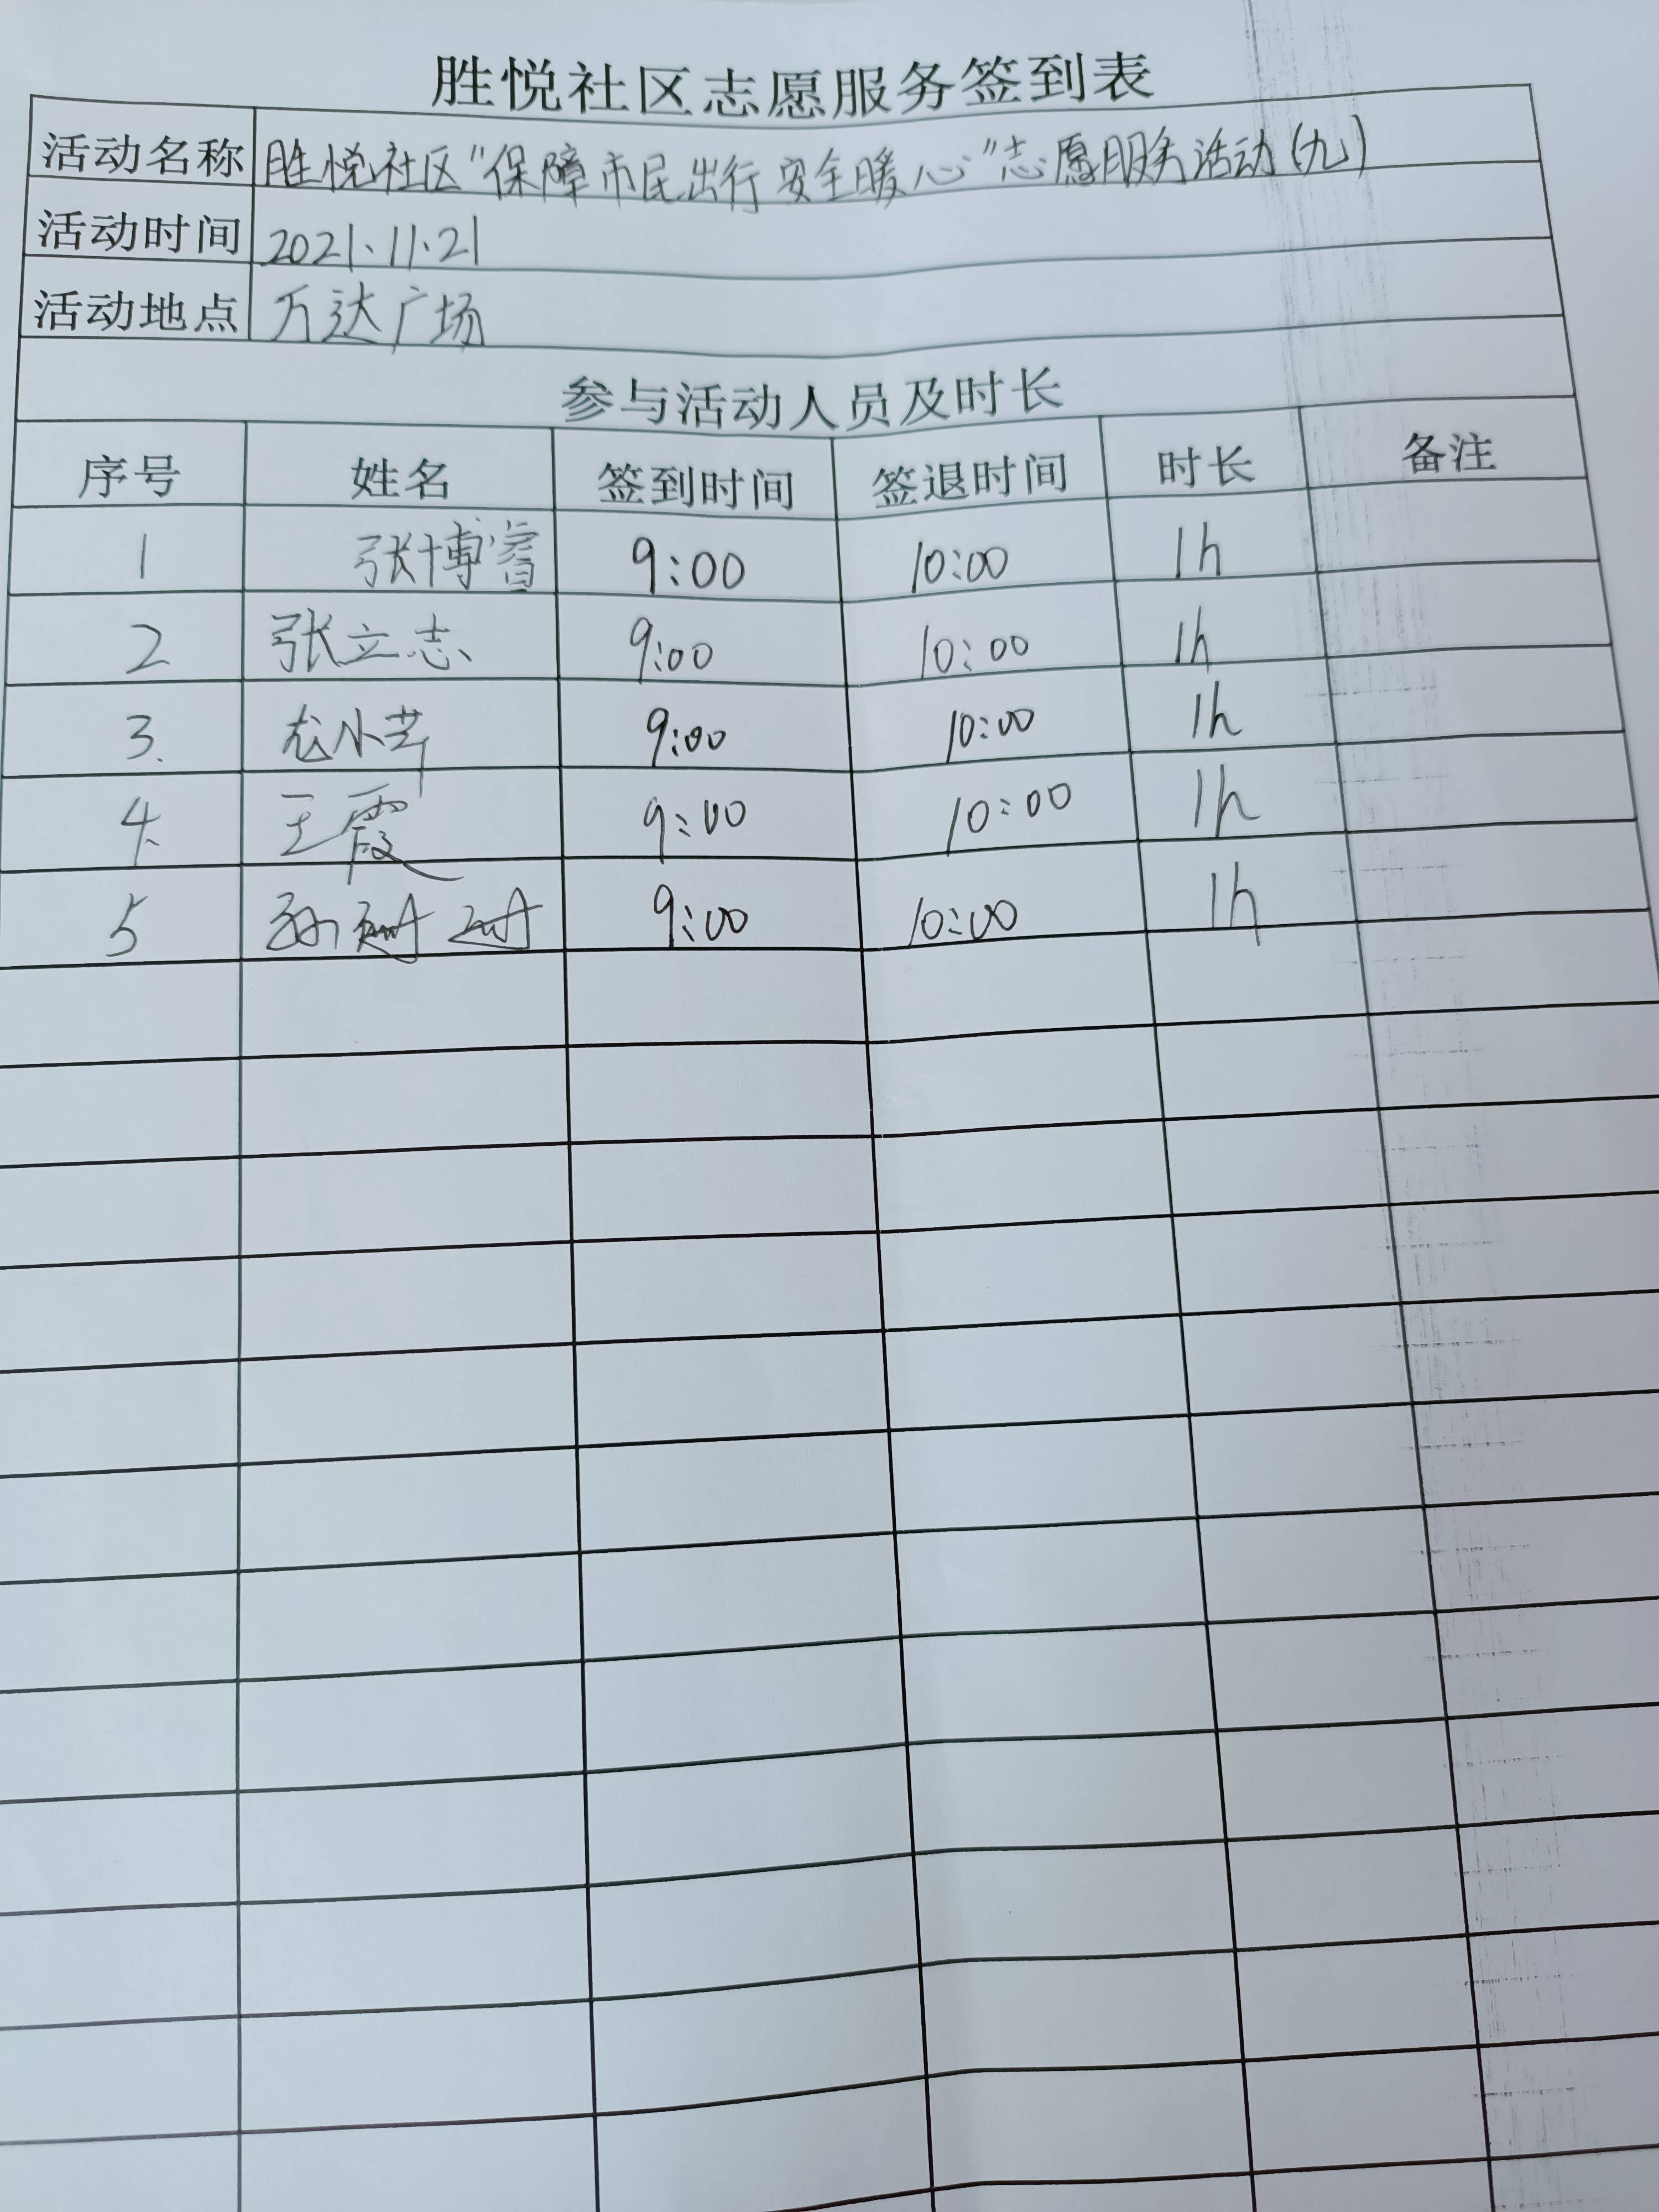 胜悦社区志愿服务签到表
活动名称 胜悦社区"保障市民出行安全暖心"志愿服务活动(九)
活动时间 2021.11.21
活动地点 万达广场
参与活动人员及时长
序号 姓名 签到时间 签退时间 时长 备注
1 张博睿 9:00 10:00 1h
2 张立志 9:00 10:00 1h
3. 小 9:00 10:00 1h
4. 王霞 9:00 10:00 1h
5 孙 9:00 10:00 1h